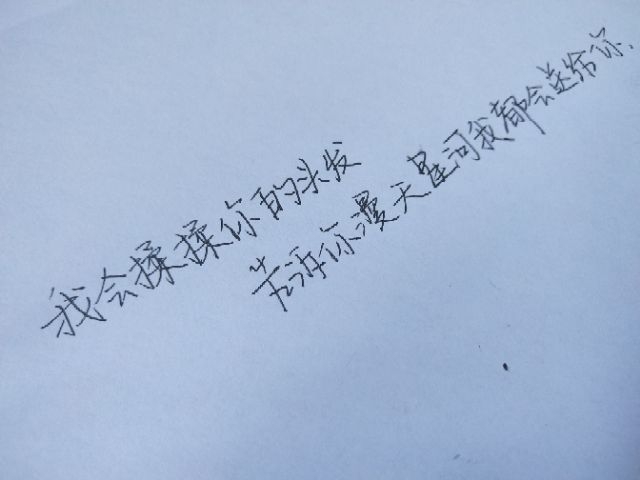 我会揉揉你的头发
告诉你漫天星河我都会送给你.